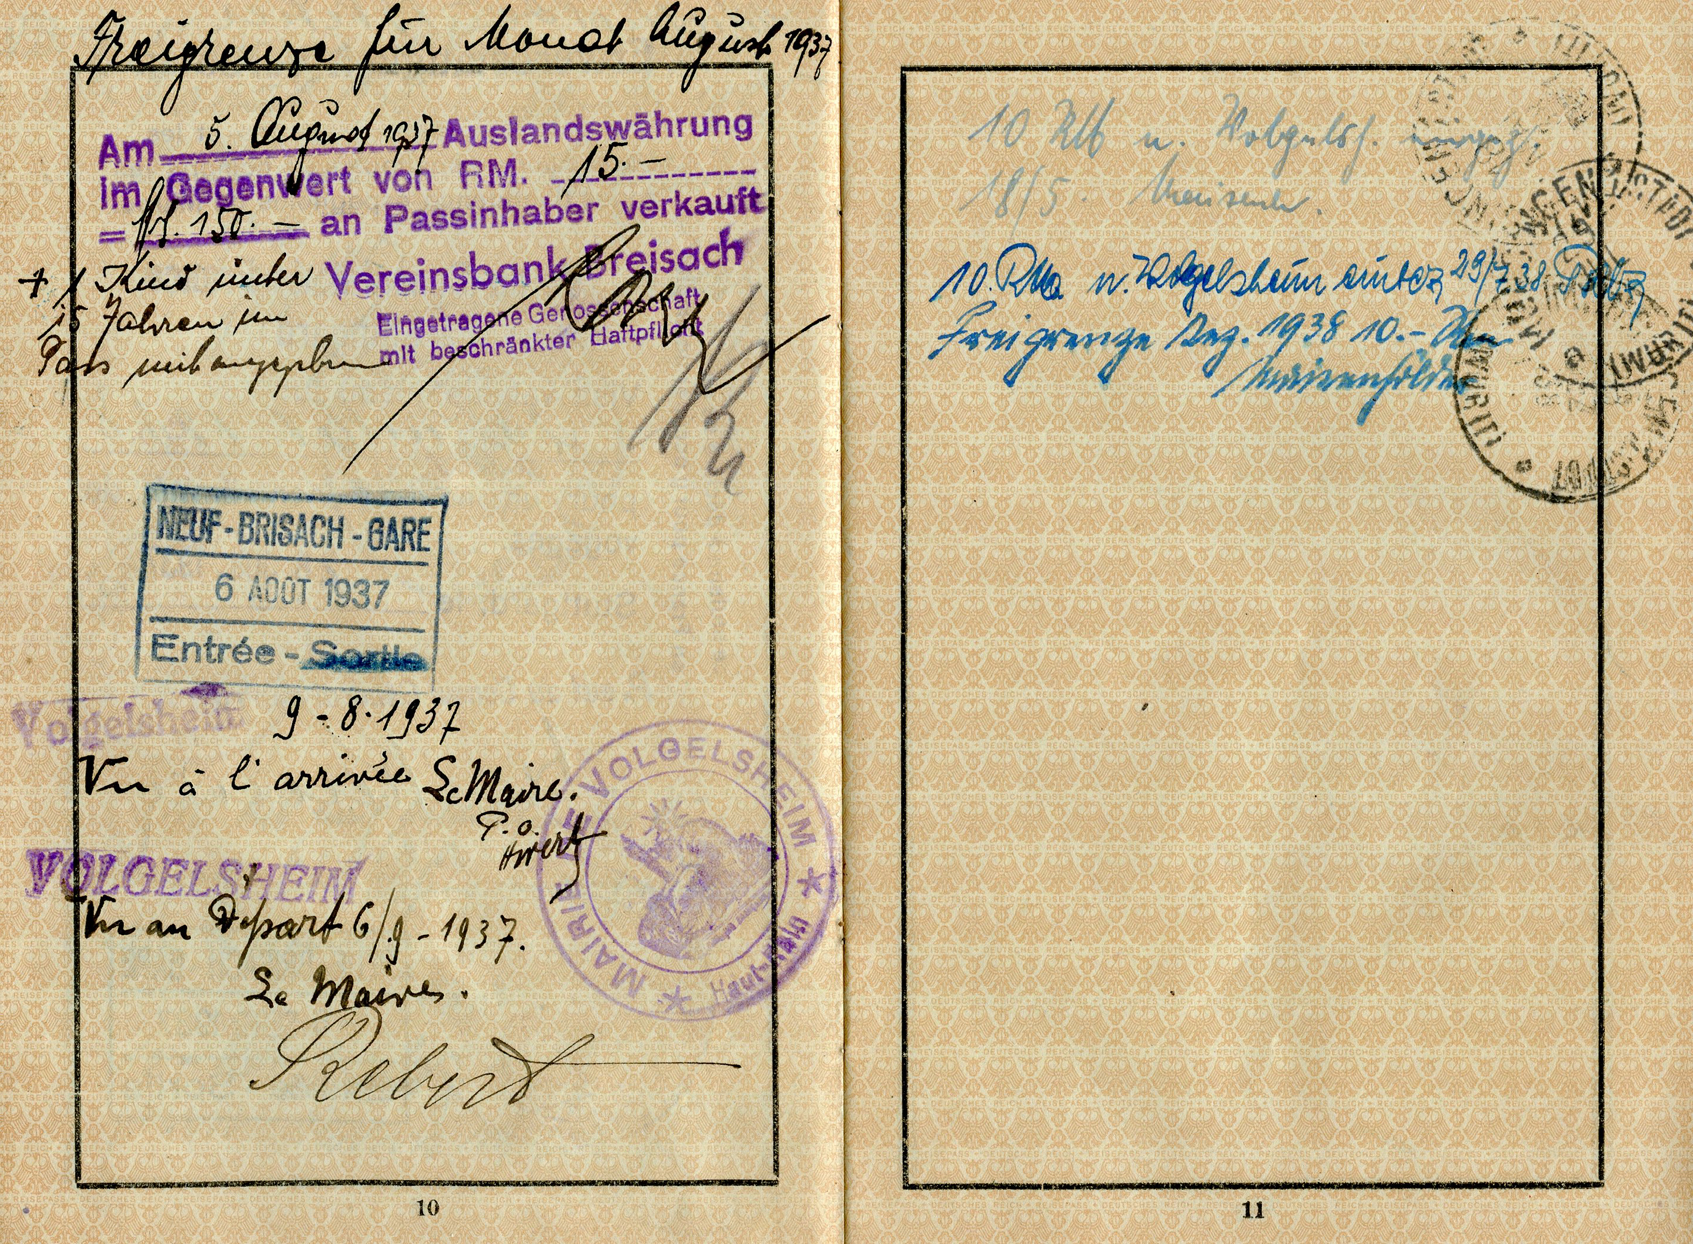 Freigrenze für Monat August 1937
Am 5. August 1937 Auslandswährung
im Gegenwert von RM. 15.-
= frs. 150.- an Passinhaber verkauft
+ 1 Kind unter
15 Jahren im
Pass mit angegeben
Vereinsbank Breisach
Eingetragene Genossenschaft
mit beschränkter Haftpflicht
NEUF-BRISACH-GARE
6 AOÛT 1937
Entrée - Sortie
Volgelsheim
9-8.1937
Vu à l'arrivée Le Maire.
P. o.
MAIRIE DE VOLGELSHEIM
Haut-Rhin
VOLGELSHEIM
Vu au Départ 6/9-1937.
Le Maire.
10
10 RM n. Volgelsh.
18/5
10. RM n. Volgelsheim 29/7 38.
Freigrenze Dez. 1938 10.-
11